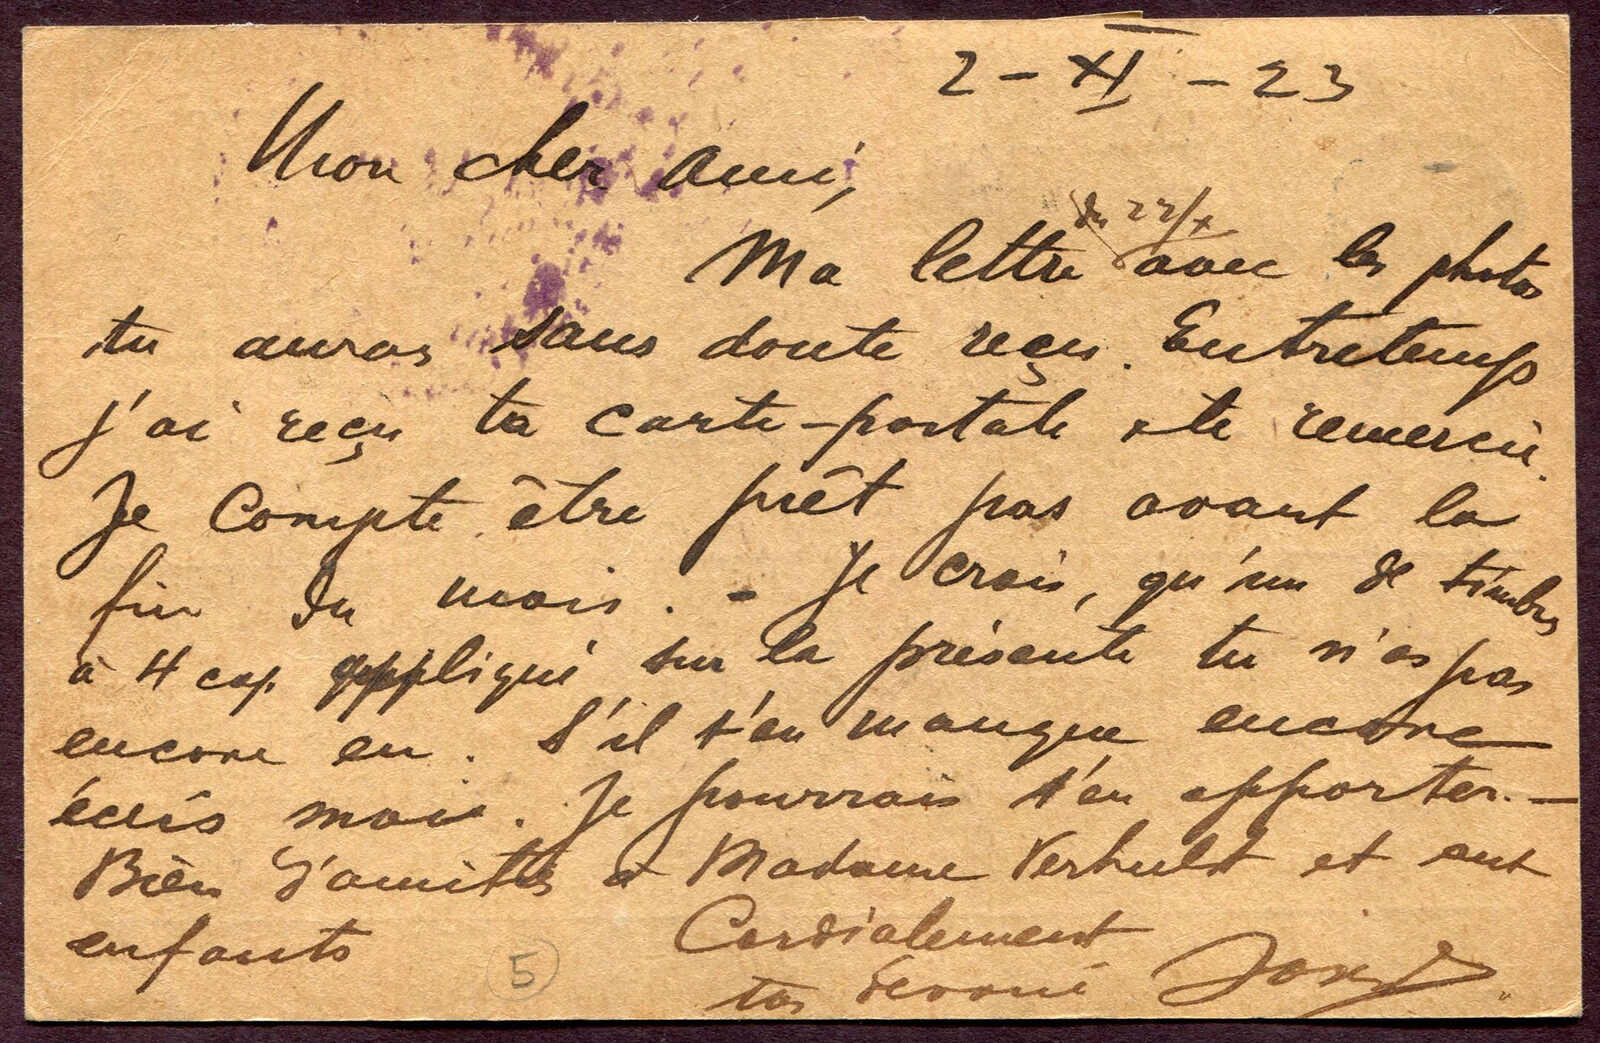 2 - XI - 23
Mon cher ami,
du 22/X
Ma lettre avec les photos
tu auras sans doute reçu. Entretemps
j'ai reçu ta carte-postale & te remercie.
Je compte être prêt pas avant la
fin du mois. - Je crois, qu'un de timbres
à 4 cop. appliqué sur la présente tu n'as pas
encore eu. S'il t'en manque encore
écris moi. Je pourrais t'en apporter. -
Bien d'amitiés à Madame Verhulst et aut
enfants
Cordialement
ton dévoué
5